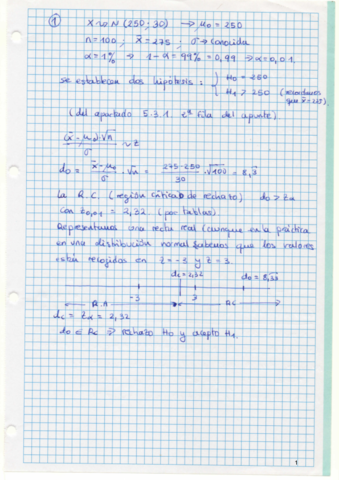 ① X ~ N (250; 30) → μ₀ = 250
n = 100; x̄ = 275; σ → conocida
α = 1% → 1 - α = 99% = 0,99 → α = 0,01
se establecen dos hipótesis: { H₀ = 250
H₁ > 250 (recordamos que x̄ = 275)
(del apartado 5.3.1 fila del apunte)
(x̄ - μ₀)·√n / σ ~ Z
d₀ = x̄ - μ₀ / σ · √n = 275 - 250 / 30 · √100 = 8,3
La R.C. (región crítica de rechazo) d₀ > Zα
con Z₀,₀₁ = 2,32 (por tablas)
Representamos una recta real (aunque en la práctica
en una distribución normal sabemos que los valores
están recogidos en z = -3 y z = 3.
dc = 2,32 d₀ = 8,33
-3 3
RC
dc = Zα = 2,32
d₀ ∈ Rc ⇒ rechazo H₀ y acepto H₁.
1